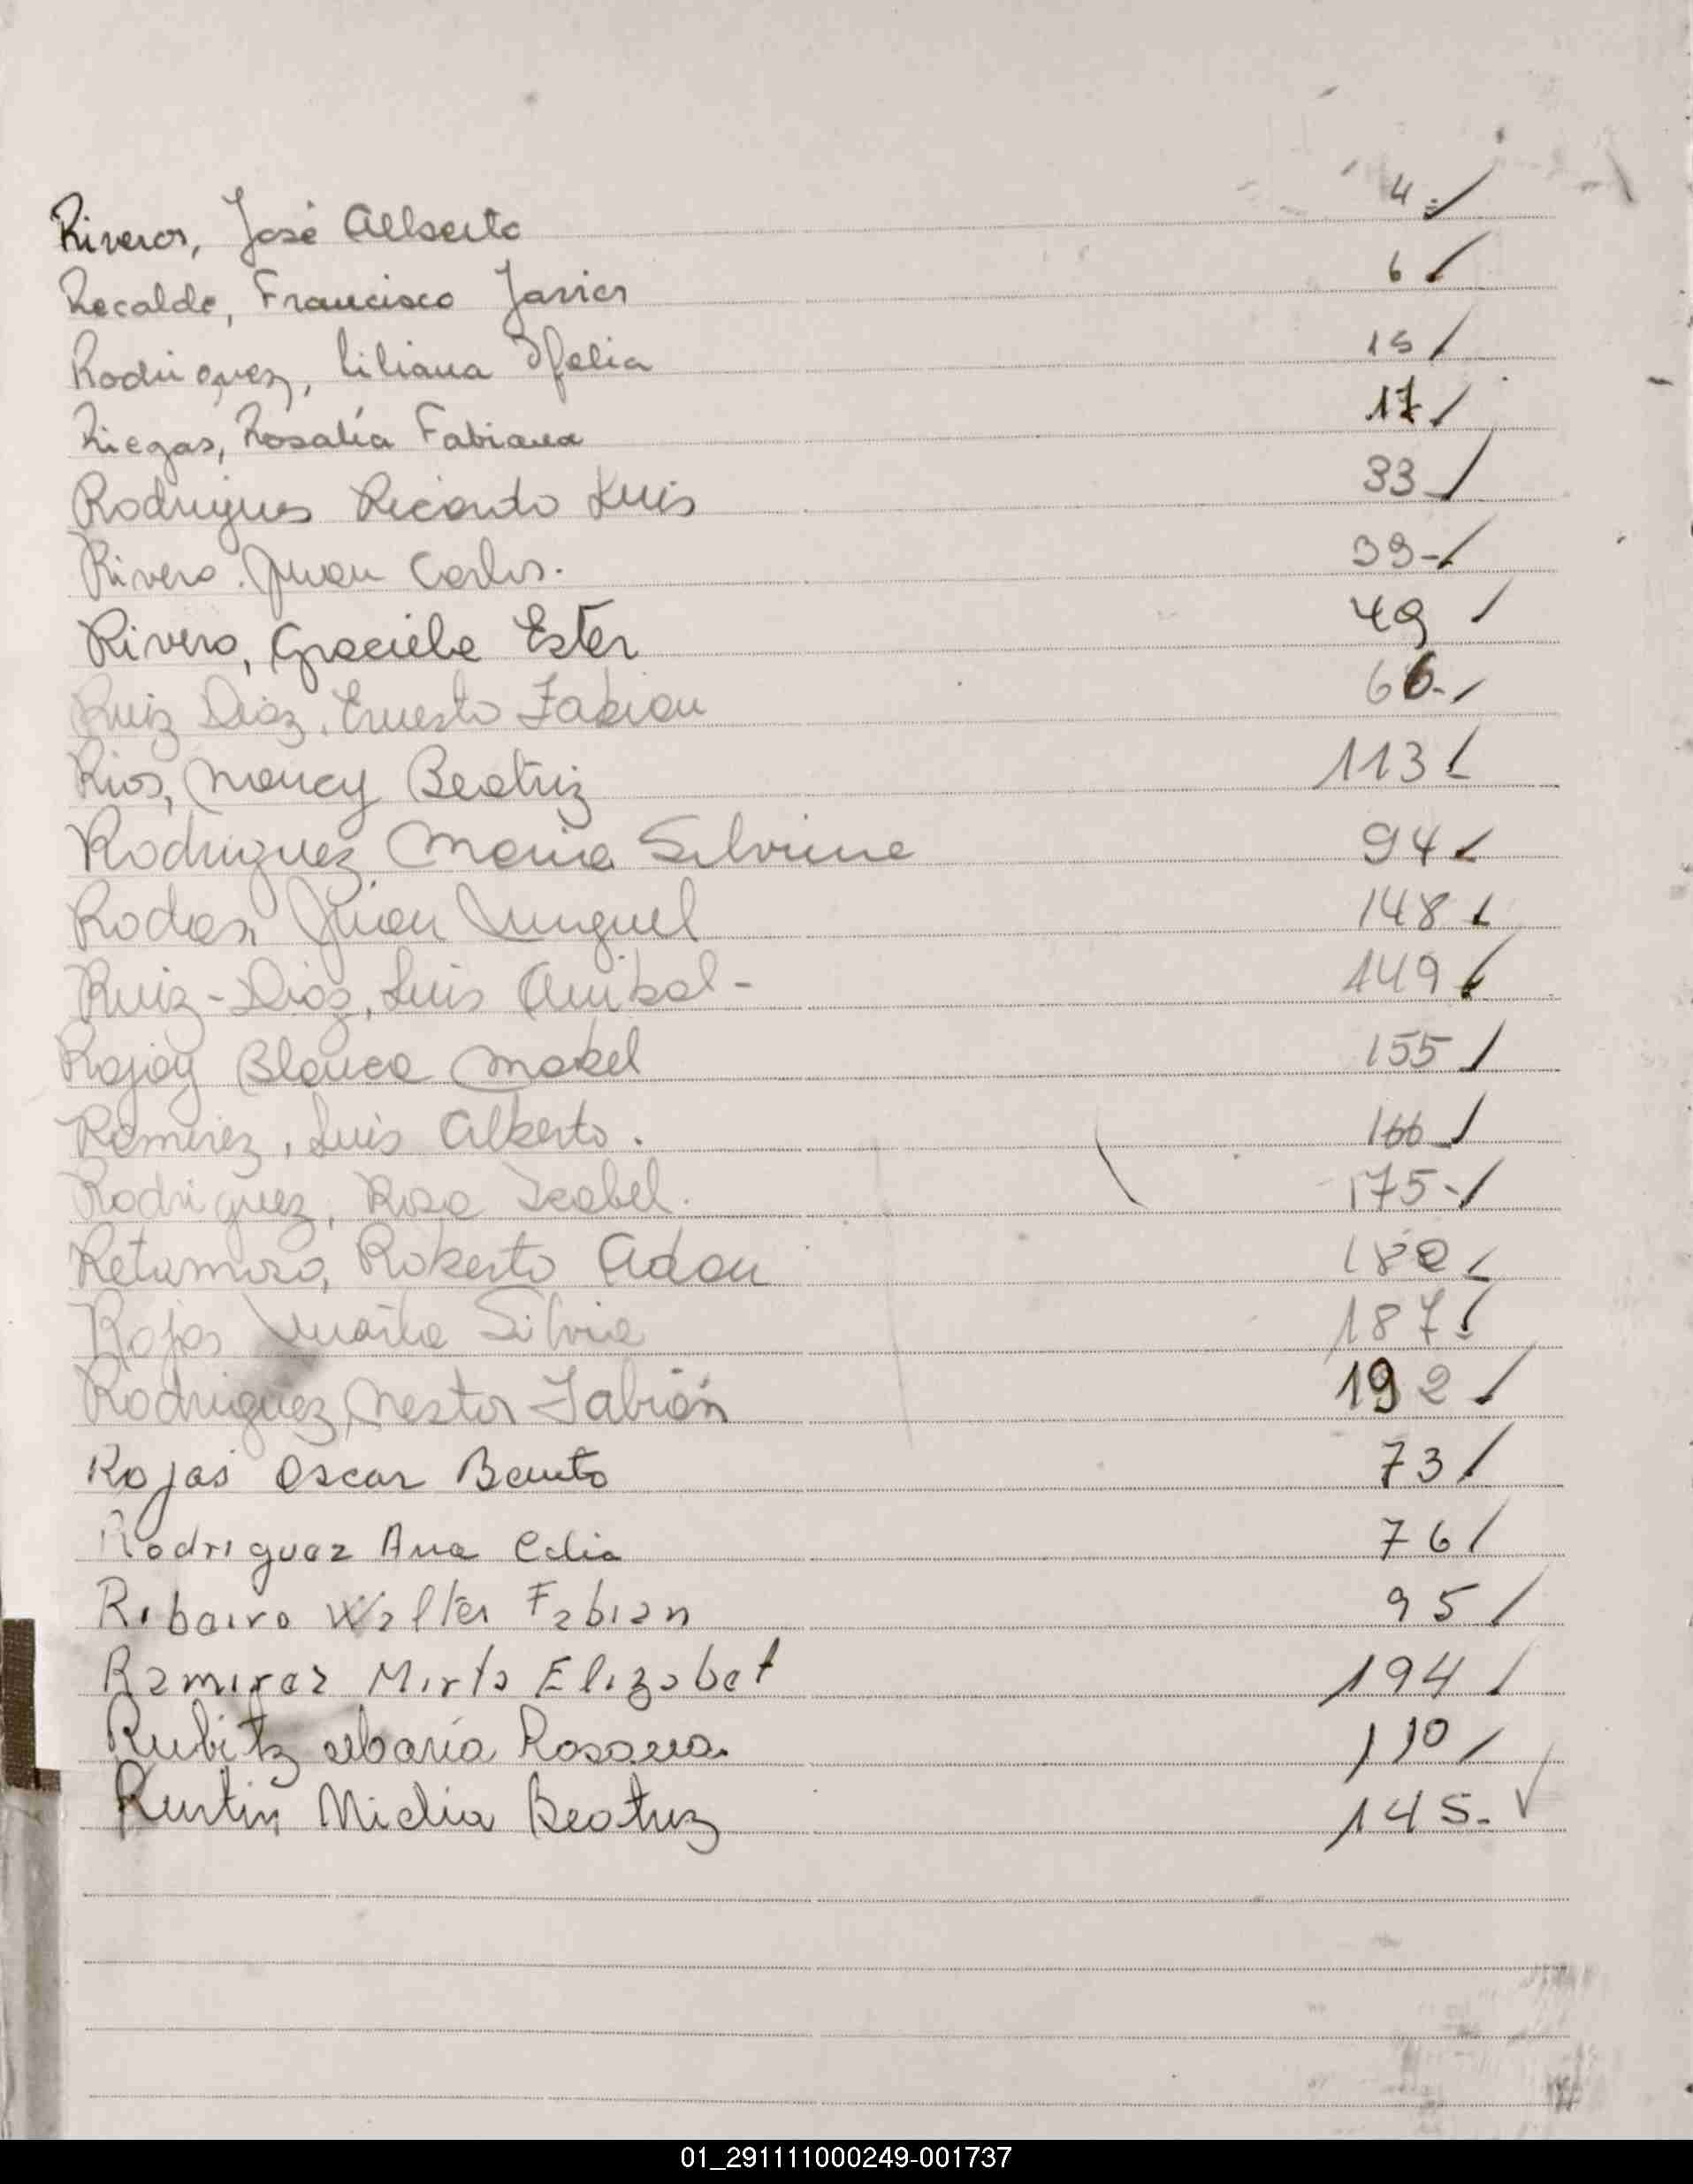 Riveros, José Alberto 4
Recalde, Francisco Javier 6
Rodriguez, Liliana Ofelia 15
Riegas, Rosalía Fabiana 17
Rodrigues Ricardo Luis 33
Rivero. Juan Carlos. 39-
Rivero, Graciela Ester 49
Ruiz Diaz, Ernesto Fabian 66-
Rios, Nancy Beatriz 113
Rodriguez, Maria Silvina 94
Rodas, Juan Miguel 148
Ruiz-Diaz, Luis Anibal - 149
Blanca Mabel 155
Ramirez, Luis Alberto. 166
Rodriguez, Rosa Isabel. 175-
Retamozo, Roberto Adan 182
Rojas Marta Silvia 187
Rodriguez, Nestor Fabián 192
Rojas Oscar Benito 73
Rodriguez Ana Celia 76
Ribeiro Walter Fabian 95
Ramirez Mirta Elizabet 194
Rubitz Maria Rosana. 110
Nidia Beatriz 145-
01_291111000249-001737